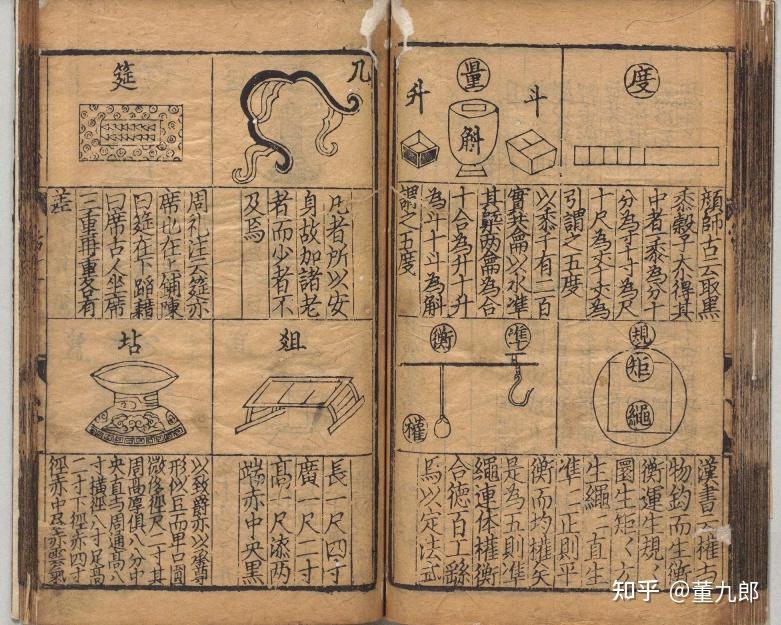 度
顔師古云取黒
黍穀子大小得其
中者黍為分十
分為寸十寸為尺
十尺為丈十丈為
引謂之五度
量
斗
斛
升
以黍千有二百
實其龠以水準
其槩两龠為合
十合為升十升
為斗十斗為斛
謂之五度
規
矩
繩
漢書云權与
物鈞而生衡
衡運生規〻
圜生矩〻方
生繩〻直生
準〻正則平
準
衡
權
衡而均權矣
是為五則準
繩連体權衡
合德百工繇
焉以定法式
几
几者所以安
身故加諸老
者而少者不
及焉
筵
周礼注云筵亦
席也在上鋪陳
曰筵在下蹈藉
曰席古人坐席
三重再重各有
差
俎
長一尺四寸
廣一尺二寸
高一尺漆两
端赤中央黒
坫
以致爵亦以承尊
形似豆而卑口圓
微侈徑尺二寸其
周高厚俱八分中
央直与周通高八
寸横徑八寸足高
二寸下徑尺四寸
赤中赤雲氣
知乎 @董九郎